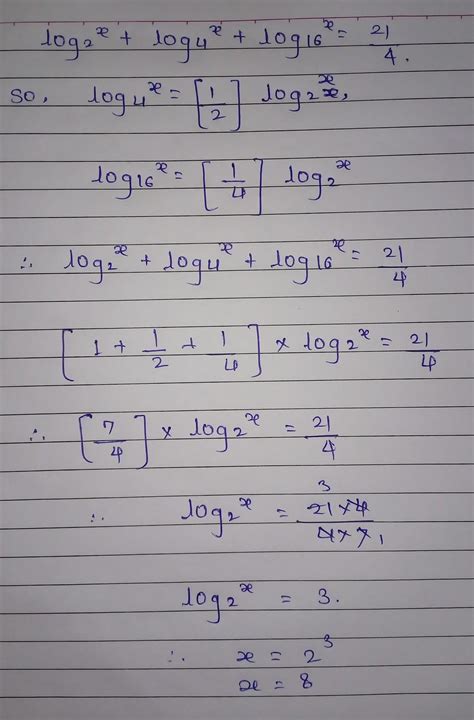 log₂ˣ + log₄ˣ + log₁₆ˣ = 21/4.
so, log₄ˣ = [1/2] log₂ˣ,
log₁₆ˣ = [1/4] log₂ˣ
∴ log₂ˣ + log₄ˣ + log₁₆ˣ = 21/4
[1 + 1/2 + 1/4] × log₂ˣ = 21/4
∴ [7/4] × log₂ˣ = 21/4
3
∴ log₂ˣ = 21×4/4×7 1
log₂ˣ = 3.
∴ x = 2³
x = 8